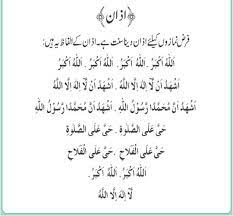 ﴿اذان﴾
فرض نمازوں کیلئے اذان دینا سنت ہے۔اذان کے الفاظ یہ ہیں:
اَللّٰهُ اَكْبَرُ . اَللّٰهُ اَكْبَرُ . اَللّٰهُ اَكْبَرُ . اَللّٰهُ اَكْبَرُ
اَشْهَدُ اَنْ لَّا اِلٰهَ اِلَّا اللّٰهُ . اَشْهَدُ اَنْ لَّا اِلٰهَ اِلَّا اللّٰهُ
اَشْهَدُ اَنَّ مُحَمَّدًا رَّسُوْلُ اللّٰهِ . اَشْهَدُ اَنَّ مُحَمَّدًا رَّسُوْلُ اللّٰهِ
حَىَّ عَلَى الصَّلٰوةِ . حَىَّ عَلَى الصَّلٰوةِ
حَىَّ عَلَى الْفَلَاحِ . حَىَّ عَلَى الْفَلَاحِ
اَللّٰهُ اَكْبَرُ . اَللّٰهُ اَكْبَرُ
لَا اِلٰهَ اِلَّا اللّٰهُ